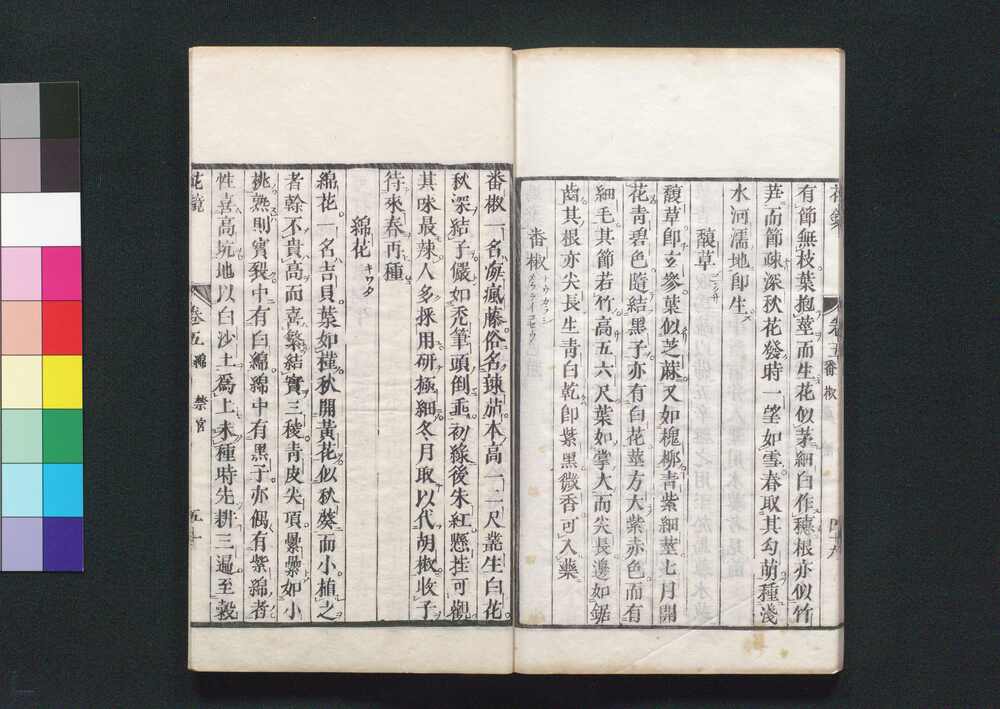 有節無枝葉抱莖而生花似茅細白作穗根亦似竹
笋而節疎深秋花發時一望如雪春取其勾萌種淺
水河濡地卽生
馥草
馥草卽玄參葉似芝蔴又如槐柳青紫細莖七月開
花青碧色隨結黑子亦有白花莖方大紫赤色而有
細毛其節若竹高五六尺葉如掌大而尖長邊如鋸
齒其根亦尖長生青白乾卽紫黑微香可入藥
畨椒
卷五畨椒
四十九
畨椒一名瘋藤俗名辣茄本高一二尺叢生白花
秋深結子儼如禿筆頭倒垂初綠後朱紅懸挂可觀
其味最辣人多採用研極細冬月取以代胡椒收子
待來春再種
綿花 キワタ
綿花一名吉貝葉如槿秋開黃花似秋葵而小植之
者幹不貴高而喜繁結實三稜青皮尖頂纍纍如小
桃熟則實裂中有白綿綿中有黑子亦偶有紫綿者
性喜高坑地以白沙土爲上未種時先耕三遍至穀
花鏡
卷五
五十